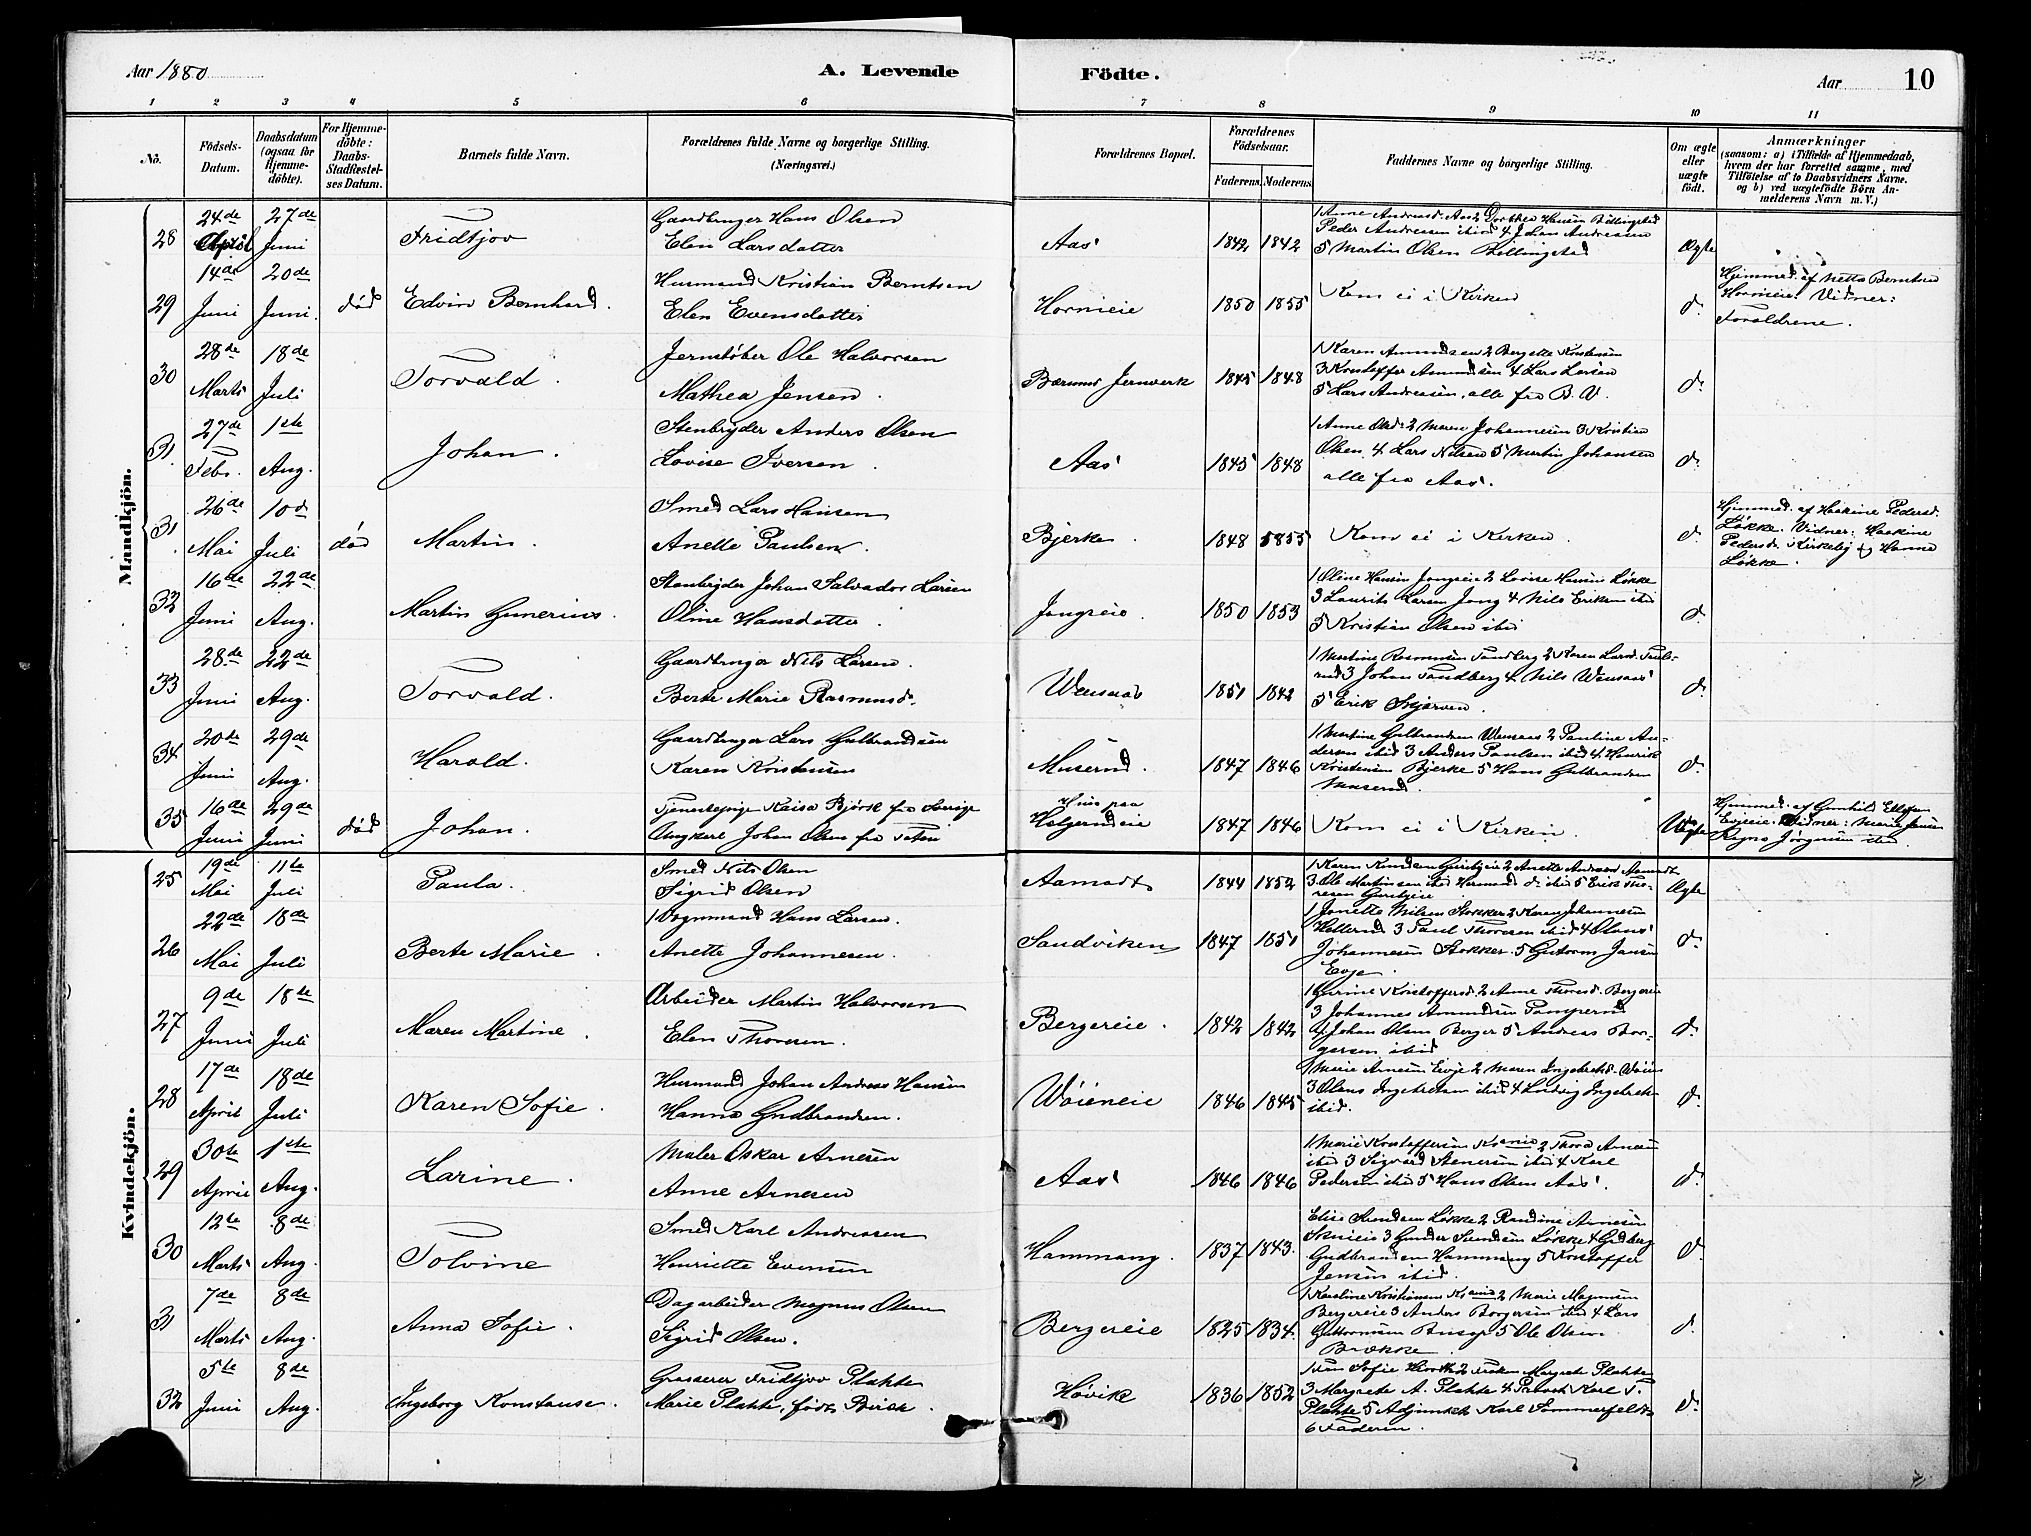 Aar 1880
A. Levende Födte.
Aar 10
1 2 3 4 5 6 7 8 9 10 11
No.
Födsels-Datum.
Daabsdatum (ogsaa for Hjemme-döbte).
For Hjemme-döbte: Daabs-Stadfæstel-ses Datum.
Barnets fulde Navn.
Forældrenes fulde Navne og borgerlige Stilling. (Næringsvei.)
Forældrenes Bopæl.
Forældrenes Födselsaar.
Faderens. Moderens.
Faddernes Navne og borgerlige Stilling.
Om ægte eller uægte födt.
Anmærkninger
(saasom: a) i Tilfælde af Hjemmedaab, hvem der har forrettet samme, med Tilföielse af to Daabsvidners Navne. og b) ved uægtefödte Börn An-melderens Navn m. V.)
Mandkjön.
28 24de April 27de Juni Fridtjov Gaardbruger Hans Olsen
Elen Larsdatter Aas 1842 1842 1 Anne Andreasd Aas 2 Dorthea Hansen Billingstad
Peder Andresen ibid 4 Johan Andreassen
5 Martin Olsen Billingstad Ægte
29 14de Juni 20de Juni. død Edvin Bernhard. Husmand Kristian Berntsen
Elen Evensdatter Hornieie 1850 1855 Kom ei i Kirken d. Hjemmed. af Mette Berntsen
Hornieie. Vidner:
Forældrene.
30 28de Marts 18de Juli Torvald. Jernstøber Ole Halvorsen
Mathea Jensen. Bærums Jernverk 1845 1848 1 Karen Amundsen 2 Bergette Kristensen
3 Kristoffer Amundsen 4 Lars Larsen
5 Lars Andresen, alle fra B. V. d.
31. 27de Febr. 1ste Aug. Johan. Stenbryder Anders Olsen
Lovise Iversen. Aas 1845 1848 1 Anne Olsd. 2 Maren Johannesen 3 Kristian
Olsen 4 Lars Nilsen 5 Martin Johansen
alle fra Aas. d.
31. 26de Mai 10d Juli død Martin. Smed Lars Hansen
Anette Paulsen. Bjerke 1848 1855 Kom ei i Kirken. d. Hjemmed. af Haakine Pedersd.
Løkke. Vidner: Haakine
Pedersd. Kirkeby og Hanna
Løkke.
32 16de Juni 22de Aug. Martin Gunerius. Stenbryder Johan Salvador Larsen
Oline Hansdatter. Jongseie. 1850 1853 1 Oline Hansen Jongseie 2 Lovise Hansen Løkke
3 Laurits Larsen Jong 4 Nils Eriksen ibid
5 Kristian Olsen ibid d.
33 28de Juni 22de Aug. Torvald. Gaardbruger Nils Larsen.
Berte Marie Rasmusd. Wensaas 1851 1842 1 Martine Rasmussen Tandberg 2 Karen Larsd. Pauls-
rud 3 Johan Tandberg 4 Nils Wensaas
5 Erik Skjærven. d.
34 20de Juni 29de Aug. Harald. Gaardbruger Lars Gulbrandsen
Karen Kristensen Muserud. 1847 1846 1 Martine Gulbrandsen Wensaas 2 Pauline An-
dersen ibid 3 Anders Paulsen ibid 4 Henrik
Kristensen Bjerke 5 Hans Gulbrandsen
Muserud. d.
35 16de Juni 29de Juni død Johan. Tjenestepige Kaisa Bjørk fra Sverige
Ungkarl Johan Olsen fra Huus paa
Helgerudeie 1847 1846 Kom ei i Kirken Uægte Hjemmed. af Gunhild Ellefsen
Evjeie. Vidner: Marie Jensen
Ragna Jørgensen ibid.
Kvindekjön.
25 19de Mai 11te Juli Paula. Smed Nils Olsen
Sigrid Olsen Aamodt 1844 1852 1 Karen Knudsen Gurebyeie 2 Anette Andreasd Aamodt
3 Ole Martinsen ibid Hermand d. ibid 5 Erik Tho-
resen Gurebyeie Ægte
26 22de Mai 18de Juli Berte Marie. Vognmand Hans Larsen.
Anette Johannesen. Sandviken 1847 1850 1 Jonette Nilsen Stokker 2 Karen Johannesen
Hellerud 3 Paul Thoresen ibid 4 Olaus
Johannesen Stokker. 5 Guttorm Jansen
Evje. d.
27 9de Juni 18de Juli Maren Martine. Arbeider Martin Halvorsen
Elen Thoresen. Bergereie. 1842 1842 1 Gurine Kristoffersd. 2 Anne Thoresd. Bergereie
3 Johannes Amundsen
4 Johan Olsen Berger 5 Andreas Bor-
gersen ibid d.
28 17de April 18de Juli Karen Sofie. Husmand Johan Andreas Hansen
Hanna Gudbrandsen. Wøieneie 1846 1845 1 Marie Arnesen Evje 2 Maren Ingebretsd. Wøien
3 Olaus Ingebretsen ibid 4 Ludvig Ingebretsen
ibid. d.
29 30te April 1ste Aug. Larine. Maler Oskar Arnesen
Anne Arnesen Aas 1846 1846 1 Marie Kristoffersen Krania 2 Thora Arnesen
ibid 3 Sigvard Stenersen ibid 4 Karl
Pedersen ibid 5 Hans Olsen Aas. d.
30 12te Marts 8de Aug. Tolvine Smed Karl Andreassen
Henriette Evensen Hammang. 1837 1843. Elise Svendsen Løkke 2 Randine Arnesen
3 Gunder Svendsen Løkke 4 Gudbrg
Gudbrandsen Hammang 5 Kristoffer
Jensen ibid. d
31 7de Marts 8de Aug. Anna Sofie. Dagarbeider Magnus Olsen
Sigrid Olsen. Bergereie 1825 1834. 1 Karoline Kristiansen Krania 2 Marie Magnusen
Bergereie 3 Anders Borgersen ibid 4 Lars
Guttormsen 5 Ole Olsen
Brække. d.
32 5te Juni 8de Aug. Ingeborg Konstanse. Grosserer Fridtjov Plahte
Marie Plahte, født Birch. Høvik 1836 1852 1 Frøken Sofie Horth 2 Frøken Margrete Plahte
3 Margrete A. Plahte 4 Provst Karl V.
Plahte 5 Adjunkt Karl Sommerfeldt
6 Faderen. d.